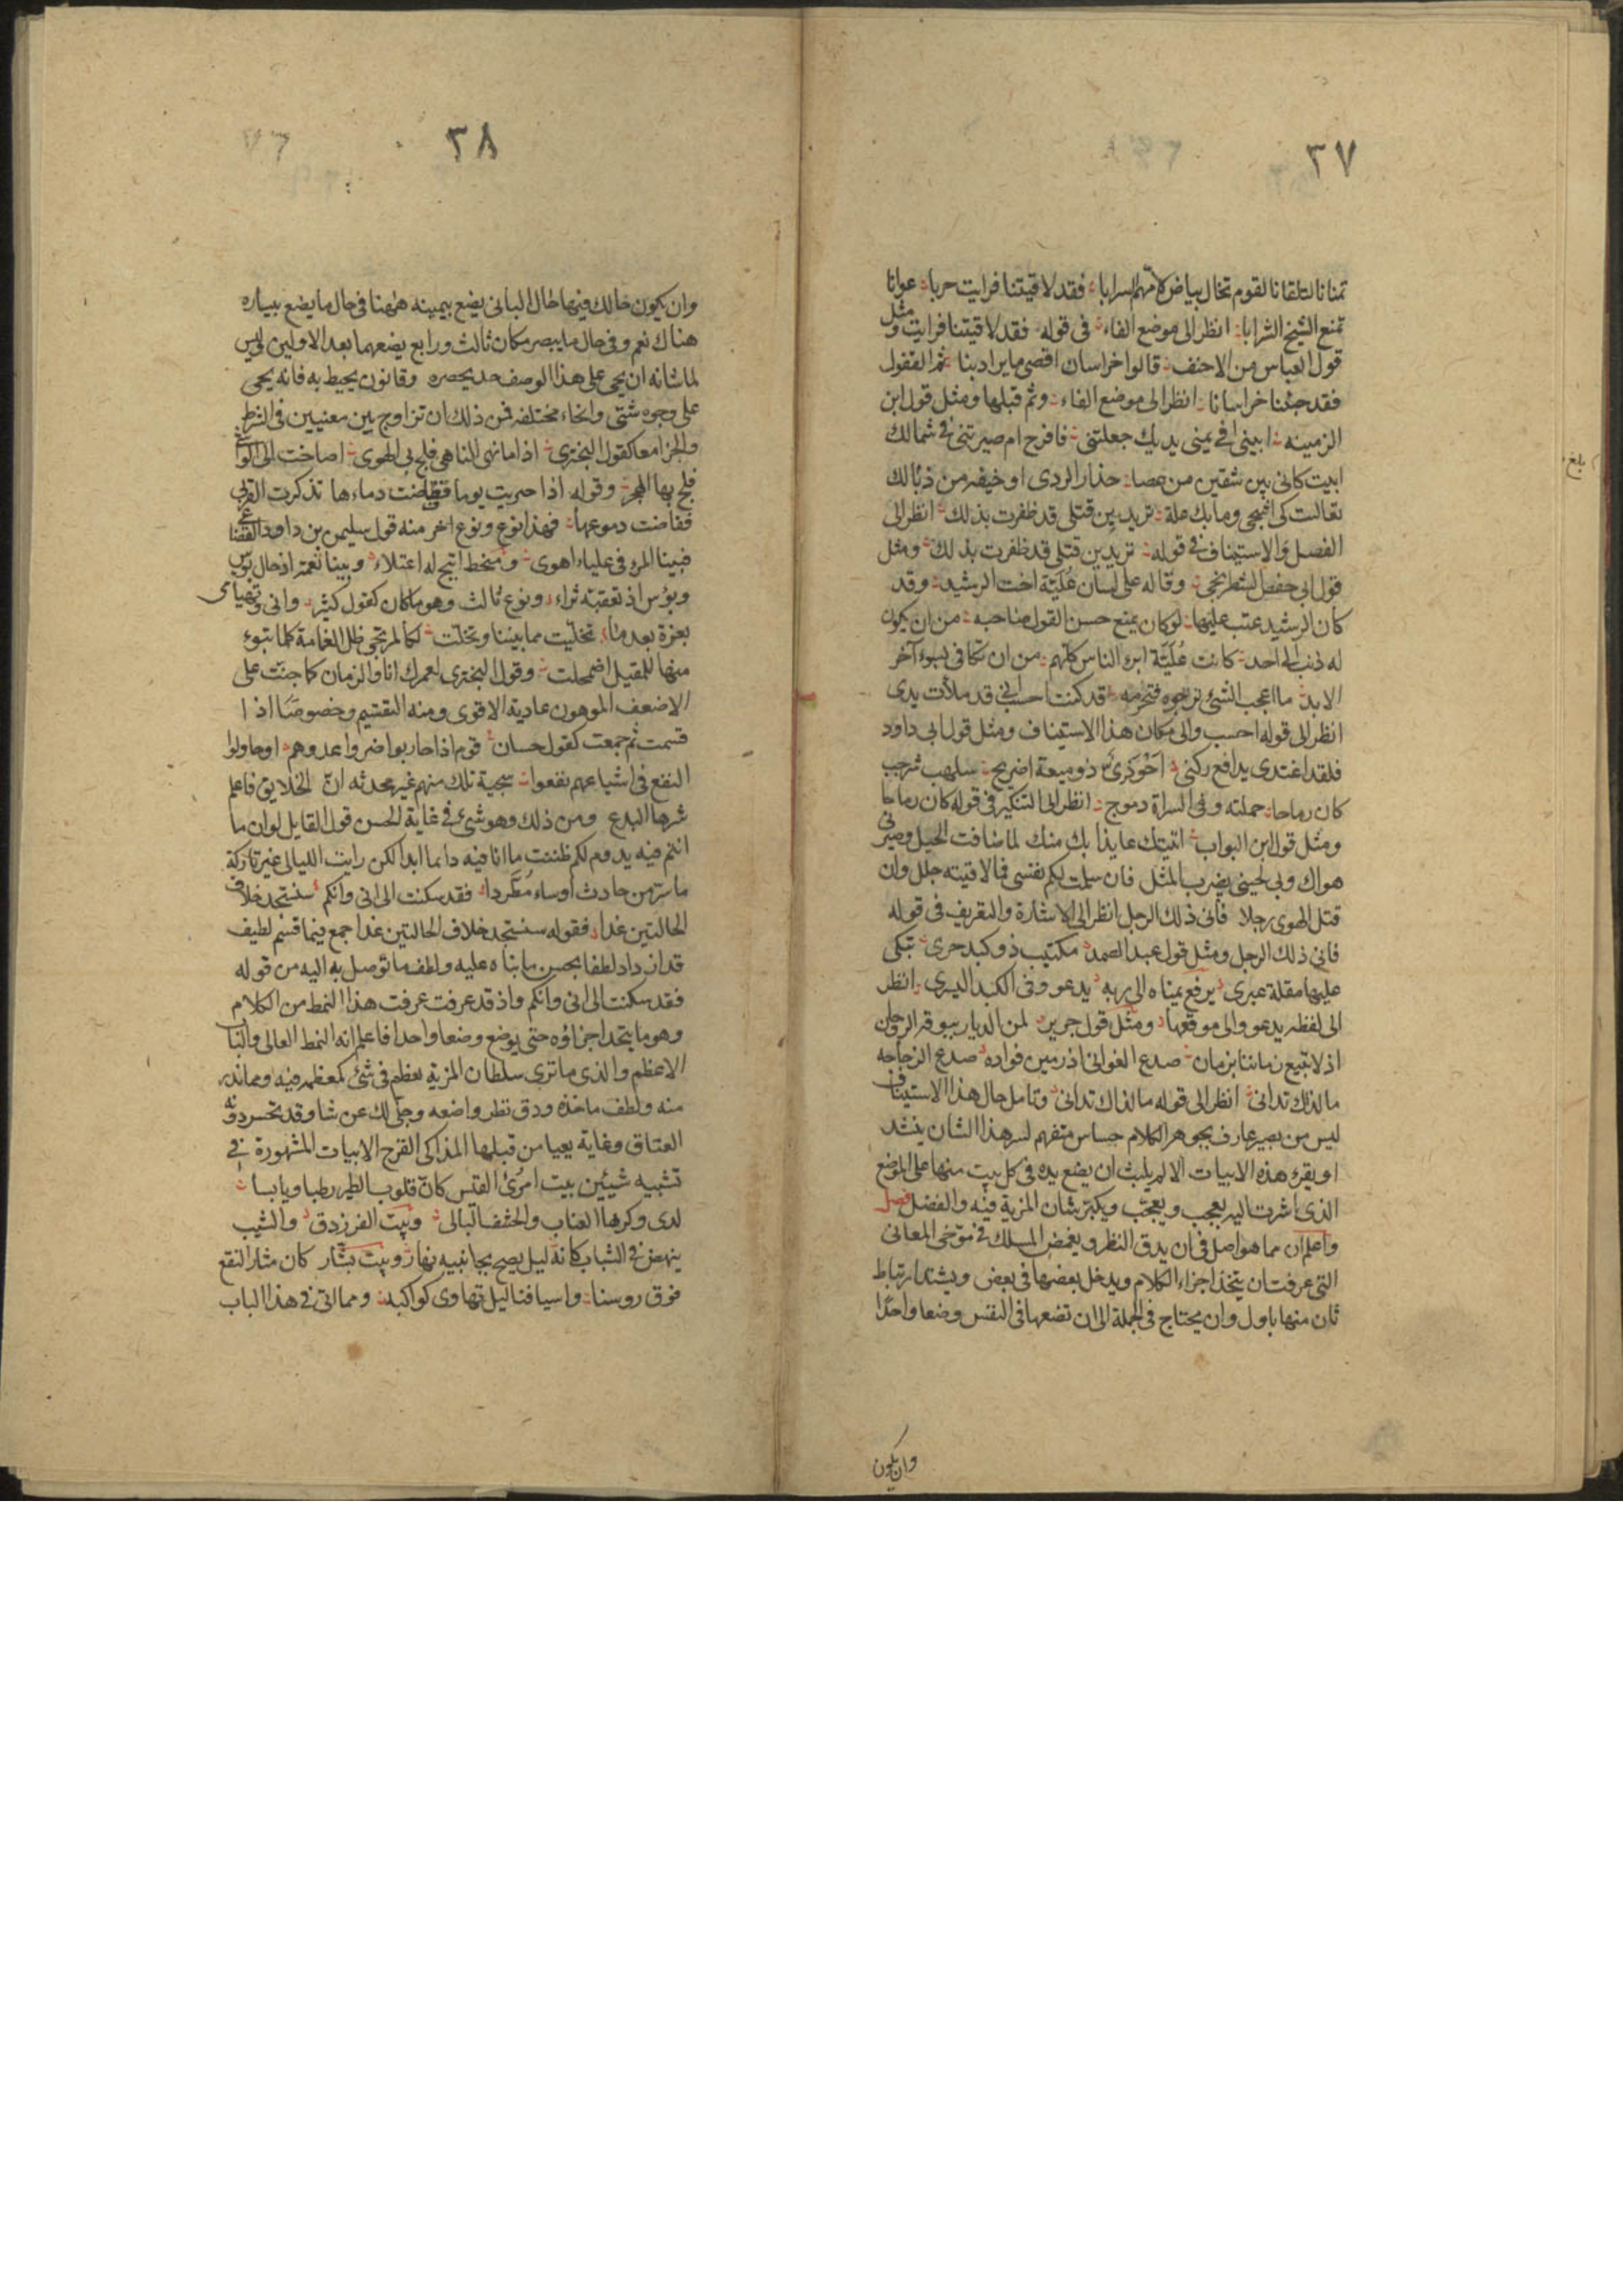 ٣٧
تمنانا لتلقانا لقوم تخال بياض لأمهم السرابا فقد لاقيتنا فرايت حربا عوانا
تمنع الشيخ الشرابا انظر الى موضع الفاء في قوله فقد لاقيتنا فرايت ومثل
قول العباس من الاحنف قالوا خراسان اقصى ما يراد بنا ثم القفول
فقد جئنا خراسانا انظر الى موضع الفاء وثم قبلها ومثل قول ابن
الدمينه ابيني افي يمنى يديك جعلتني فافرح ام صيرتني في شمالك
ابيت كاني بين شقين من عصا حذار الردى او خيفه من زيالك
تعاللت كي اشجى وما بك علة تريدين قتلى قد ظفرت بذلك انظر الى
الفصل والاستيناف في قوله تريدين قتلى قد ظفرت بذلك ومثل
قول ابي حفص الشطرنجي وقاله على لسان عُلَيّة اخت الرشيد وقد
كان الرشيد عتب عليها لو كان يمنع حسن القول صاحبه من ان يكون
له ذنب الى احد كانت عُلَيّة ابرا الناس كلهم من ان تكافى بسوء آخر
الابد ما اعجب الشئ نرجوه فنحرمه قد كنت احسب اني قد ملأت يدى
انظر الى قوله احسب والى مكان هذا الاستيناف ومثل قول ابي داود
فلقد اغتدى يدافع ركنى ذو ميعة اضريج سلهب شرجب
كان رماحا حملته وفي السراة دموج انظر الى التنكير في قوله كان رماحا
ومثل قول ابن البواب اتيتك عايذا بك منك لما ضاقت الحيل وصيرني
هواك وبي لحيني يضرب المثل فان سلمت لكم نفسى فما لاقيته جلل وان
قتل الهوى رجلا فانى ذلك الرجل انظر الى الاشارة والتعريف في قوله
فانى ذلك الرجل ومثل قول عبد الصمد مكتئب ذو كبد حرى تبكى
عليها مقلة عبرى يرفع يمناه الى ربه يدعو وفوق الكبد اليسرى انظر
الى لفظه يدعو والى موقعها ومثل قول جرير لمن الديار ببرقة الروحان
اذ لا نبيع زماننا بزمان صدع الغوانى اذ رمين فواده صدع الزجاجه
ما لذلك تدانى انظر الى قوله ما لذاك تدانى وتامل حال هذا الاستيناف
ليس من بصير عارف بجوهر الكلام حساس متفهم لسر هذا الشان ينشد
او يقرء هذه الابيات الا لم يلبث ان يضع يده في كل بيت منها على الموضع
الذى اشرت اليه يعجب ويعجّب ويكبّر شان المزية فيه والفضل فصل
واعلم ان مما هو اصل في ان يدق النظر ويغمض المسلك في توخى المعانى
التى عرفت ان يتحد اجزاء الكلام ويدخل بعضها في بعض ويشتد ارتباط
ثان منها باول وان يحتاج في الجملة الى ان تضعها في النفس وضعا واحدا
وان يكون
بلغ
٣٨
وان يكون حالك فيها حال البانى يضع بيمينه ههنا في حال ما يضع بيساره
هناك نعم وفي حال ما يبصر مكان ثالث ورابع يضعهما بعد الاولين وليس
لما شانه ان يجى على هذا الوصف حد يحصره وقانون يحيط به فانه يجى
على وجوه شتى وانحاء مختلفه فمن ذلك ان تزاوج بين معنيين في الشرط
والجزا معا كقول البحترى اذا ما نهى الناهى فلج بى الهوى اصاخت الى الواشى
فلج بها الهجر وقوله اذا احتربت يوما ففاضت دماءها تذكرت القربى
ففاضت دموعها فهذا نوع ونوع اخر منه قول سليمن بن داود القضاعى
فبينا المرء في علياء اهوى ومنحط اتيح له اعتلاء وبينا نعمة اذ حال بوس
وبؤس اذ تعقبته ثراء ونوع ثالث وهو ما كان كقول كثير وانى وتهيامى
بعزة بعد ما تخليت مما بيننا وتخلت لكالمرتجى ظل الغمامة كلما تبوء
منها للمقيل اضمحلت وقول البحترى لعمرك انا والزمان كما جنت على
الاضعف الموهون عادية الاقوى ومنه التقسيم وخصوصًا اذا
قسمت ثم جمعت كقول حسان قوم اذا حاربوا ضروا عدوهم او حاولوا
النفع في اشياعهم نفعوا سجية تلك منهم غير محدثه انّ الخلايق فاعلم
شرها البدع ومن ذلك وهو شئ في غاية الحسن قول القايل لو ان ما
انتم فيه يدوم لكم ظننت ما انا فيه دايما ابدا لكن رايت الليالى غير تاركة
ما سر من حادث او ساء مُطَّردا فقد سكنت الى انى وانكم سنستجد خلاف
الحالتين غدا فقوله سنستجد خلاف الحالتين غدا جمع فيما قسم لطيف
قد ازداد لطفا بحسن ما بناه عليه ولطف ما توصل به اليه من قوله
فقد سكنت الى انى وانكم واذ قد عرفت عرفت هذا النمط من الكلام
وهو ما يتحد اجزاؤه حتى يوضع وضعا واحدا فاعلم انه النمط العالى والباب
الاعظم والذى ما ترى سلطان المزية يعظم في شئ كعظمه فيه ومما ندر
منه ولطف ماخذه ودق نظر واضعه وجلى لك عن شاو قد تحسر دونه
العتاق وغاية يعيا من قبلها المذاكى القرح الابيات المشهورة في
تشبيه شيئين بيت امرئ القيس كانّ قلوب الطير رطبا ويابسا
لدى وكرها العناب والحشف البالى وبيت الفرزدق والشيب
ينهض في الشباب كانه ليل يصيح بجانبيه نهار وبيت بشّار كان مثار النقع
فوق روسنا واسيافنا ليل تهاوى كواكبه ومما اتى في هذا الباب